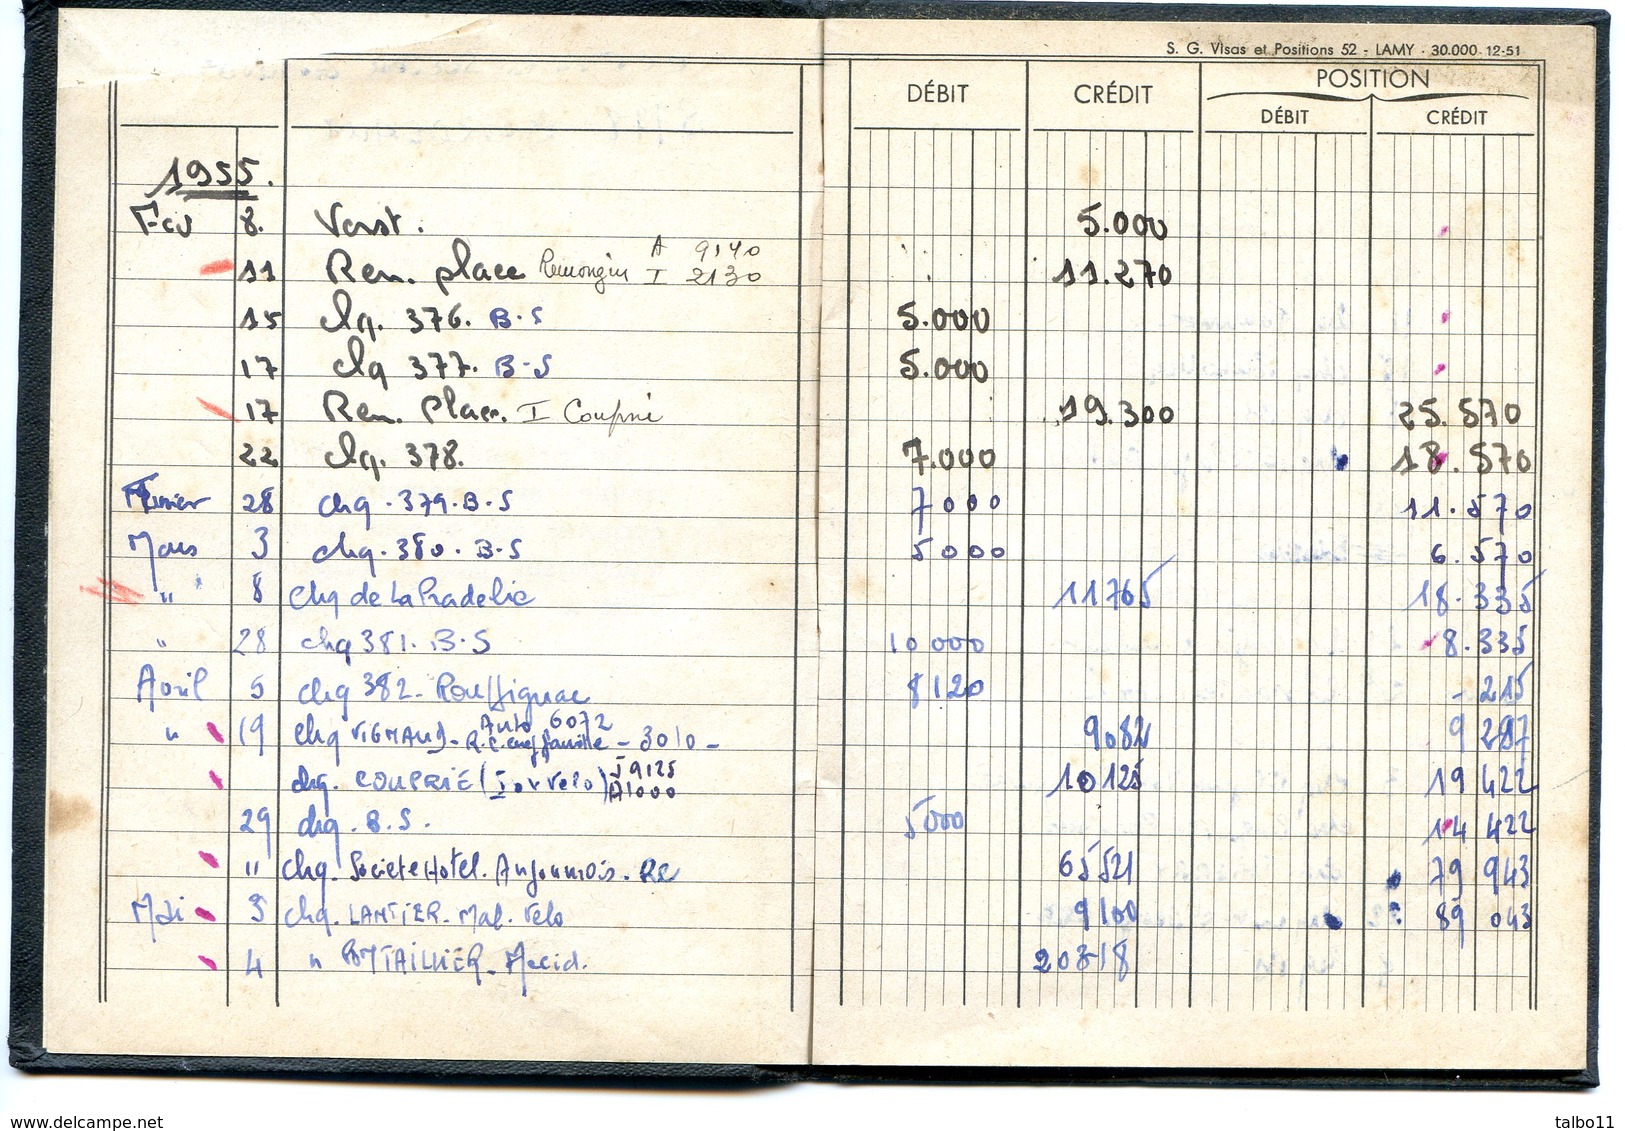 S. G. Visas et Positions 52 - LAMY - 30.000 12-51
DÉBIT CRÉDIT POSITION
DÉBIT CRÉDIT
1955.
Fev 8. Verst. 5.000
11 Rem. place Remongin A 9140 I 2130 11.270
15 chq. 376. B.S 5.000
17 chq 377. B-S 5.000
17 Rem. Place. I Couprie 19.300 25.570
22 chq. 378. 7.000 18.570
28 chq. 379. B.S 7000 11.570
Mars 3 chq. 380. B-S 5000 6.570
" 8 chq de La Pradelie 11765 18.335
" 28 chq 381. B.S 10000 8.335
Avril 5 chq 382. Rouffignac 8120 - 215
" 19 chq VIGNAUD - Auto 6072 R.C. chef famille - 3010 - 9082 9 297
chq. COUPRIE (I or Velo) I 9125 A 1000 10125 19 422
29 chq. B.S. 5000 14 422
" chq. Societe Hotel. Angoumois. RC 65521 79 943
Mai 3 chq. LANTIER. Mal. Velo 9100 89 043
4 " Accid. 20318
www.delcampe.net
talbo11